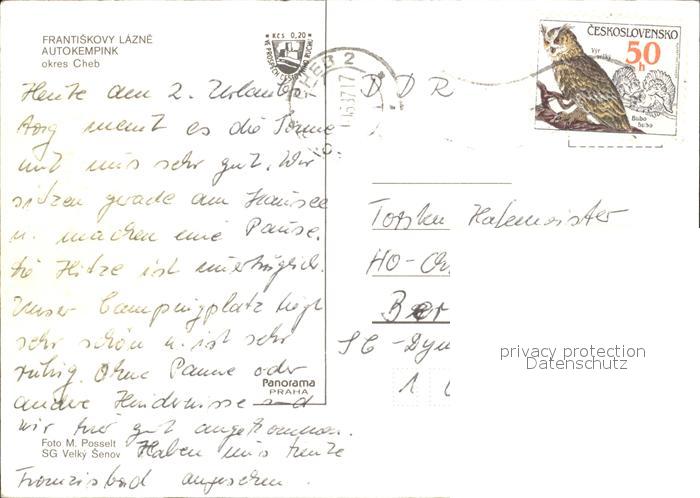 FRANTIŠKOVY LÁZNĚ
AUTOKEMPINK
okres Cheb
Heute am 2. Urlaubs-
tag meint es die Sonne
mit uns sehr gut. Wir
sitzen gerade am
u. machen eine Pause.
die Hitze ist unerträglich.
Unser Campingplatz liegt
sehr schön u. ist sehr
ruhig. Ohne Panne oder
andre Hindernisse sind
wir hier gut angekommen.
Haben uns heute
Franzisbad angesehen.
Panorama
PRAHA
Foto M. Posselt
SG Velký Šenov
Kčs 0,20
CHEB 2
ČESKOSLOVENSKO
50 h
Výr velký
Bubo bubo
DDR
Hafemeister
HO-
Ber
SG-Dyn
1
privacy protection
Datenschutz